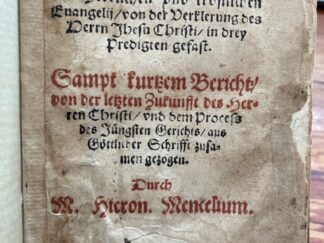 Evangelij/ von der Verklerung des
Herrn Jhesu Christi/ in drey
Predigten gefast.
Sampt kurtzem Bericht/
von der letzten Zukunfft des Her-
ren Christi/ vnd dem Proceß
des Jüngsten Gerichts/ aus
Göttlicher Schrifft zusa-
men gezogen.
Durch
M. Hieron. Mencelium.